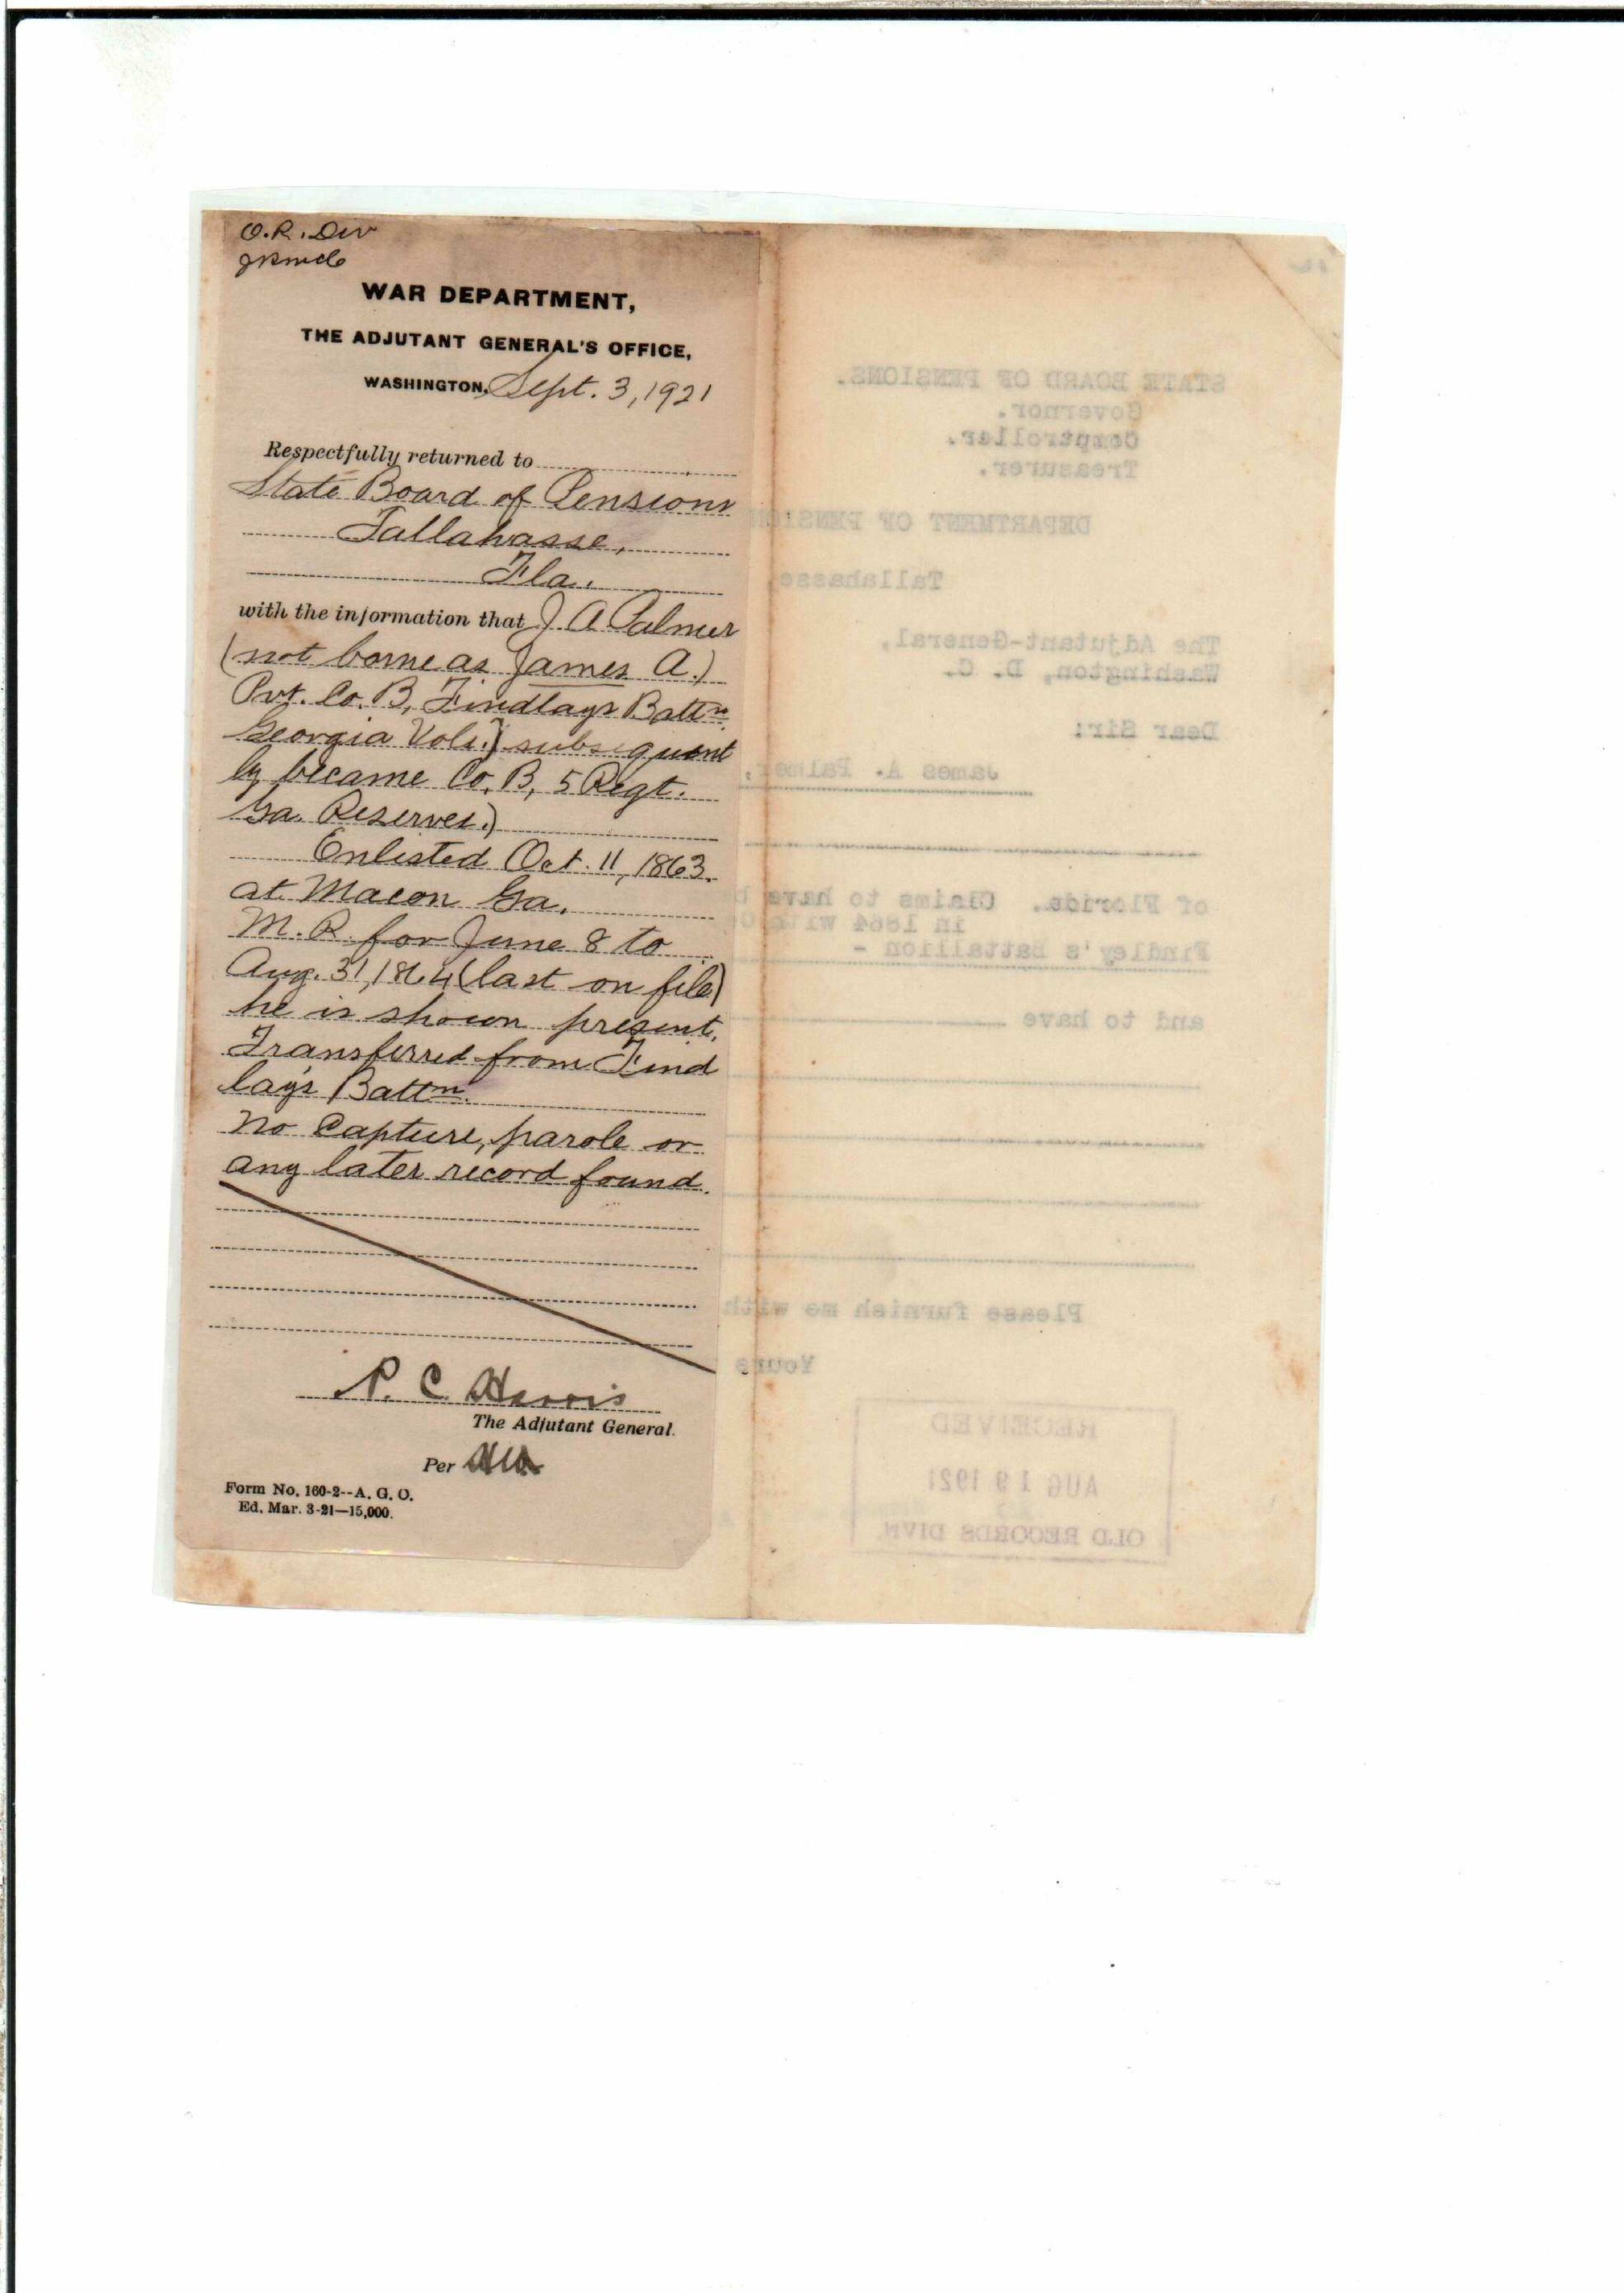 O.R. Div
WAR DEPARTMENT,
THE ADJUTANT GENERAL'S OFFICE,
WASHINGTON, Sept. 3, 1921
Respectfully returned to
State Board of Pensions
Tallahasse,
Fla.
with the information that J A Palmer
(not borne as James A.)
Pvt. Co. B, Findlays Battn
Georgia Vols.) subsequent
ly became Co. B, 5 Regt.
Ga. Reserves.)
Enlisted Oct. 11, 1863.
at Macon Ga.
M.R. for June 8 to
Aug. 31, 1864 (last on file)
he is shown present.
Transferred from Find
lay's Battn.
No Capture, parole or
any later record found.
P. C. Harris
The Adjutant General.
Per
Form No. 160-2--A. G. O.
Ed. Mar. 3-21—15,000.
STATE BOARD OF PENSIONS.
Governor.
Comptroller.
Treasurer.
DEPARTMENT OF PENSION
Tallahasse
The Adjutant-General,
Washington, D. C.
Dear Sir:
James A. Palmer,
of Florida. Claims to have b
in 1864 with Co
Findley's Battallion -
and to have
Please furnish me with
Yours
RECEIVED
AUG 19 1921
OLD RECORDS DIVN.